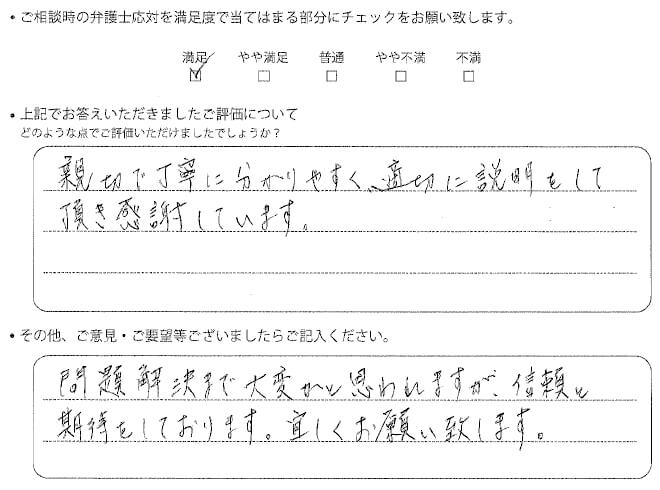 • ご相談時の弁護士応対を満足度で当てはまる部分にチェックをお願い致します。
満足 やや満足 普通 やや不満 不満
☑ □ □ □ □
• 上記でお答えいただきましたご評価について
どのような点でご評価いただけましたでしょうか？
親切で丁寧に分かりやすく、適切に説明をして
頂き感謝しています。
• その他、ご意見・ご要望等ございましたらご記入ください。
問題解決まで大変かと思われますが、信頼と
期待をしております。宜しくお願い致します。